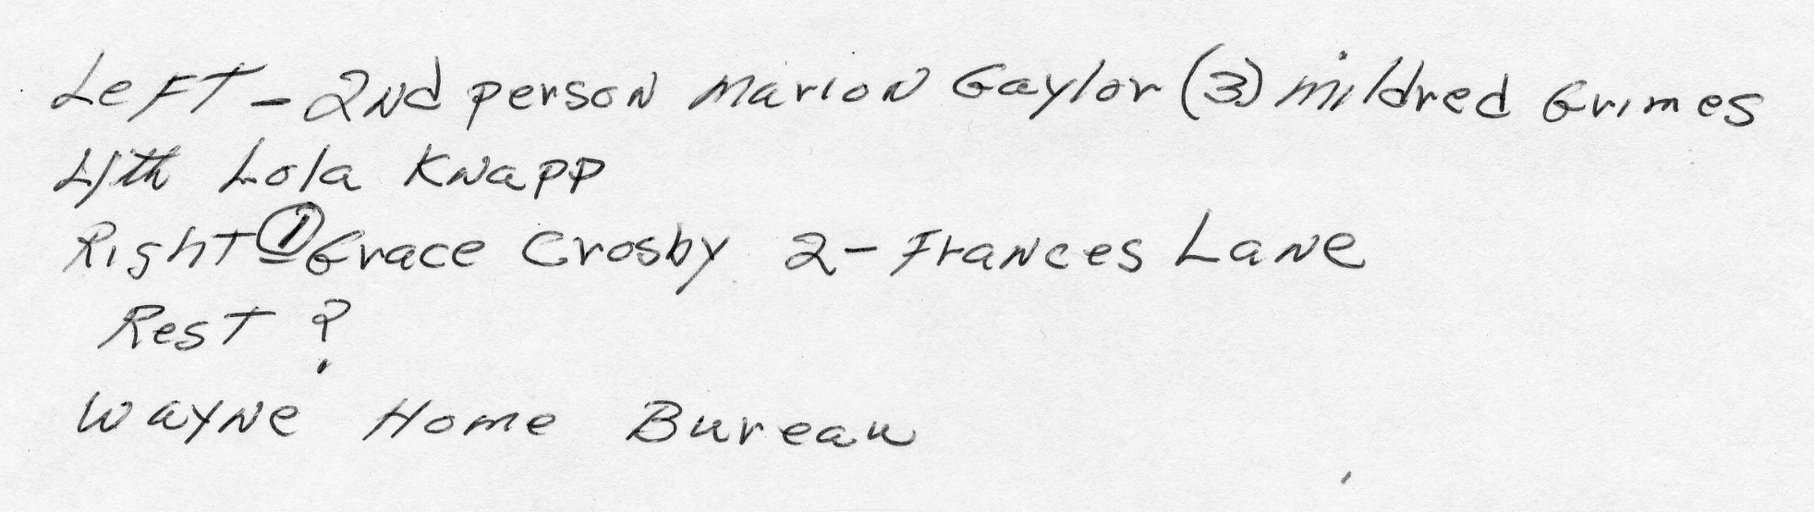 Left - 2nd person Marion Gaylor (3) Mildred Grimes
4th Lola Knapp
Right ① Grace Crosby 2- Frances Lane
Rest ?
Wayne Home Bureau